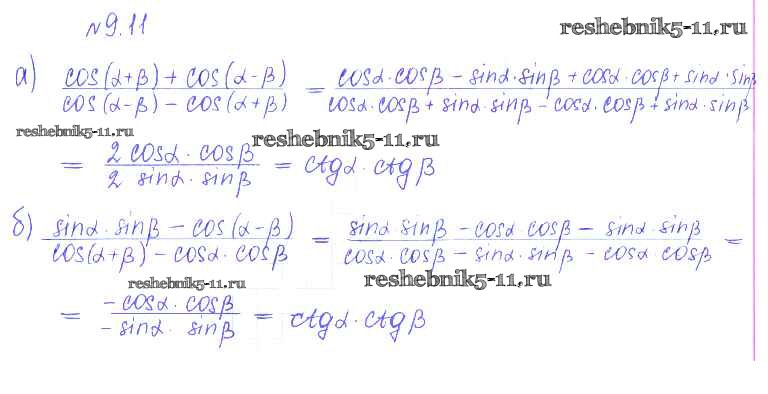 №9.11
reshebnik5-11.ru
а) cos(α+β) + cos(α-β) / cos(α-β) - cos(α+β) = cosα·cosβ - sinα·sinβ + cosα·cosβ + sinα·sinβ / cosα·cosβ + sinα·sinβ - cosα·cosβ + sinα·sinβ
reshebnik5-11.ru
reshebnik5-11.ru
= 2 cosα·cosβ / 2 sinα·sinβ = ctgα·ctgβ
б) sinα·sinβ - cos(α-β) / cos(α+β) - cosα·cosβ = sinα·sinβ - cosα cosβ - sinα·sinβ / cosα·cosβ - sinα·sinβ - cosα cosβ =
reshebnik5-11.ru
reshebnik5-11.ru
= -cosα·cosβ / -sinα·sinβ = ctgα·ctgβ